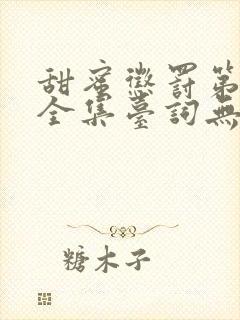 甜蜜懲罰第
全集臺詞無
糖木子